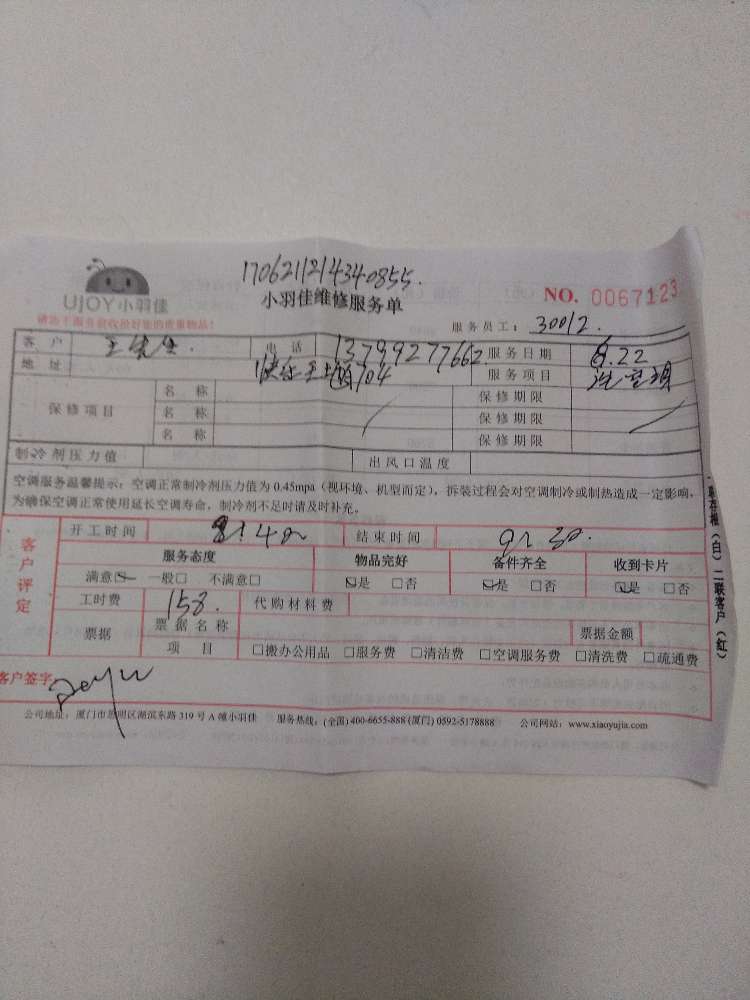 1706211214340855.
UJOY小羽佳
小羽佳维修服务单
NO. 0067123
请恕不服务验收拾好您的贵重物品!
服务员工: 30012.
客户 王先生. 电话 13799277662 服务日期 6.22
地址 704 服务项目 洗空调
保修项目 名称 保修期限
名称 保修期限
名称 保修期限
制冷剂压力值 出风口温度
空调服务温馨提示:空调正常制冷剂压力值为 0.45mpa(视环境、机型而定),拆装过程会对空调制冷或制热造成一定影响,
为确保空调正常使用延长空调寿命,制冷剂不足时请及时补充。
客户评定
开工时间 8:40 结束时间 9:30.
服务态度 物品完好 备件齐全 收到卡片
满意☑ 一般□ 不满意□ ☑是 □否 ☑是 □否 ☑是 □否
工时费 158. 代购材料费
票据 票据名称 票据金额
项目 □搬办公用品 □服务费 □清洁费 □空调服务费 □清洗费 □疏通费
客户签字
公司地址:厦门市思明区湖滨东路 319 号 A 幢小羽佳 服务热线:(全国)400-6655-888(厦门) 0592-5178888 公司网站:www.xiaoyujia.com
一联存根(白)二联客户(红)